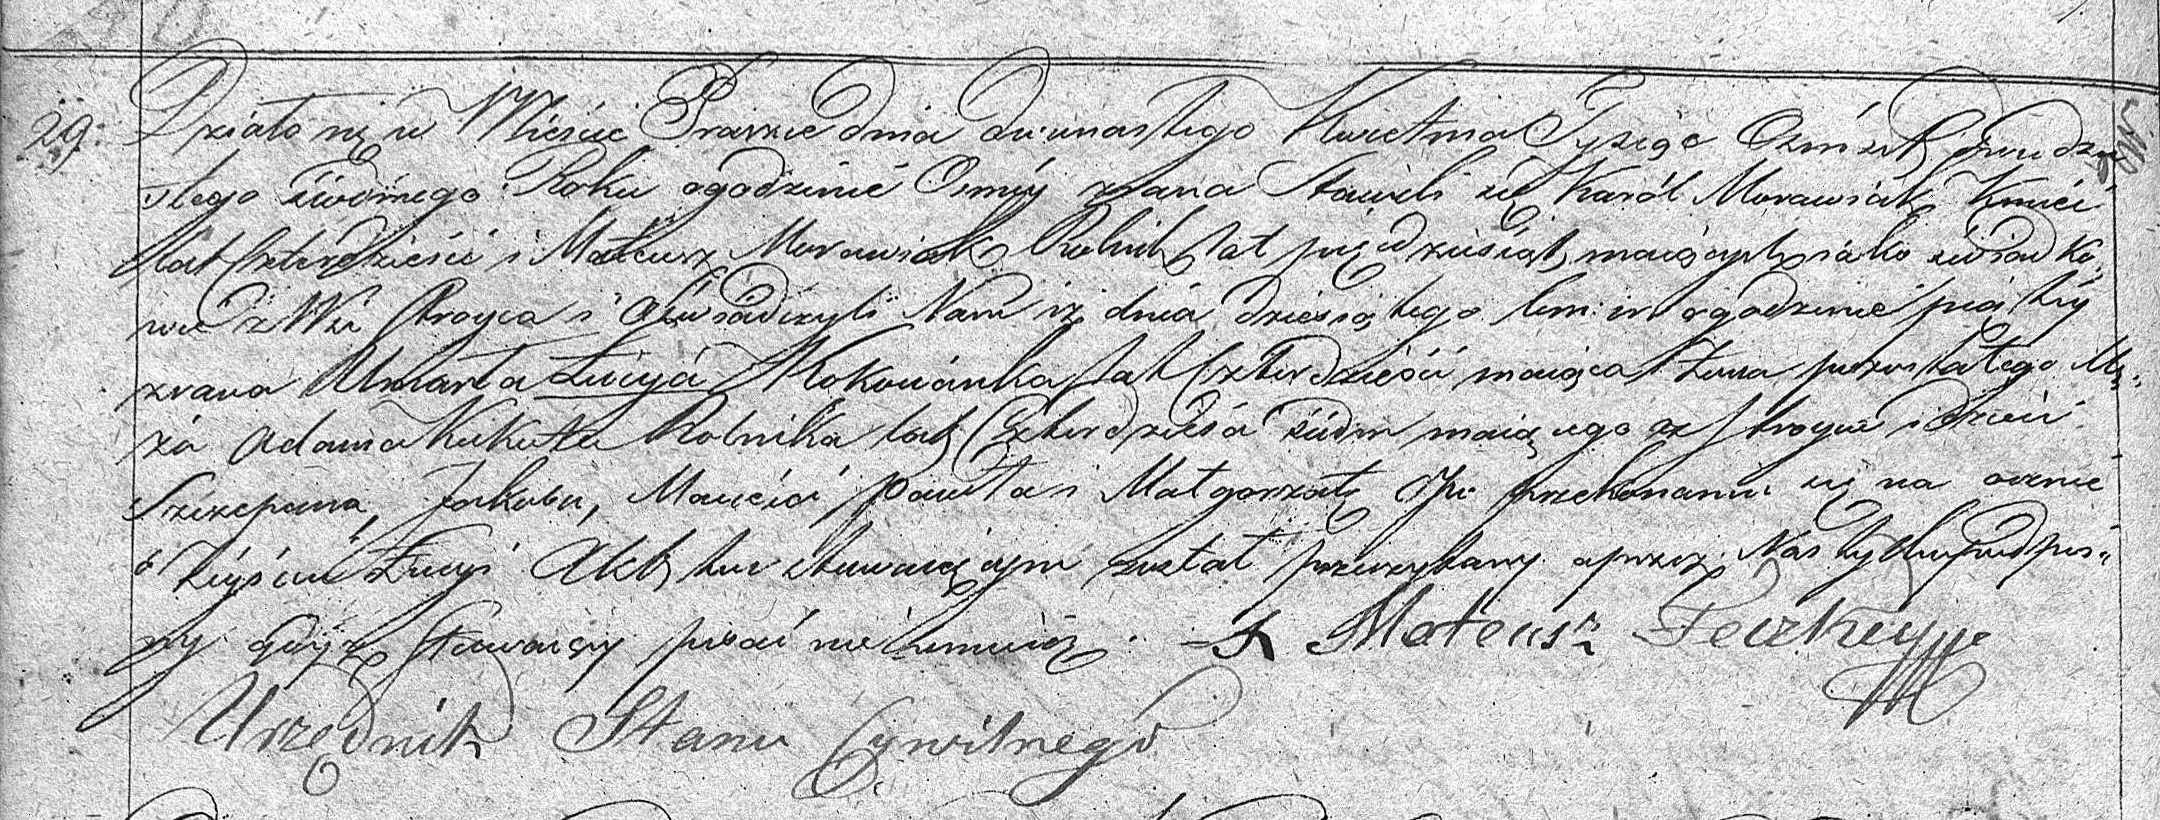 29. Działo się w Mieście Prażce dnia dwunastego Kwietnia Tysiąc Ośmset dwudzie
stego siódmego Roku o godzinie Osmy zrana Stawili się Karól Morawiak Kmieć
lat Czterdzieści i Mateusz Morawiak Rolnik lat pięćdziesiąt maiących iako świadko
wie z Wsi i Oświadczyli Nam iż dnia dziesiątego b.m. i r. o godzinie piątÿ
zrana Umarła Łucyia Kokocianka lat Czterdzieści maiąca Zona pozostałego Mę„
ża Adama Kukuła Rolnika lat Czterdzieści siedm maiącego ze i dzieci
Szczepana, Jakuba, Macieia Pawła i Małgorzaty Po przekonaniu się na ocznie
o Zeyściu Łucyi Akt ten stawaiącym został przeczytany a przez Nas tylko podpisa„
ny gdyż Stawaiący pisać nie umieią. X Mateusz
Urzędnik Stanu Cywilnego